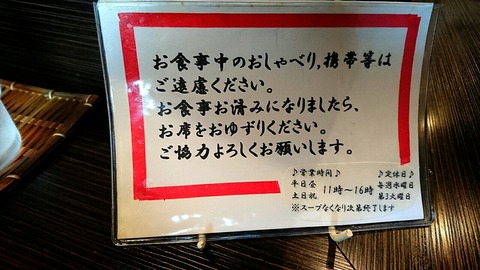 お食事中のおしゃべり,携帯等は
ご遠慮ください。
お食事お済みになりましたら、
お席をおゆずりください。
ご協力よろしくお願いします。
♪営業時間♪
平日金
土日祝
11時〜16時
※スープなくなり次第終了します
♪定休日♪
毎週水曜日
第3火曜日